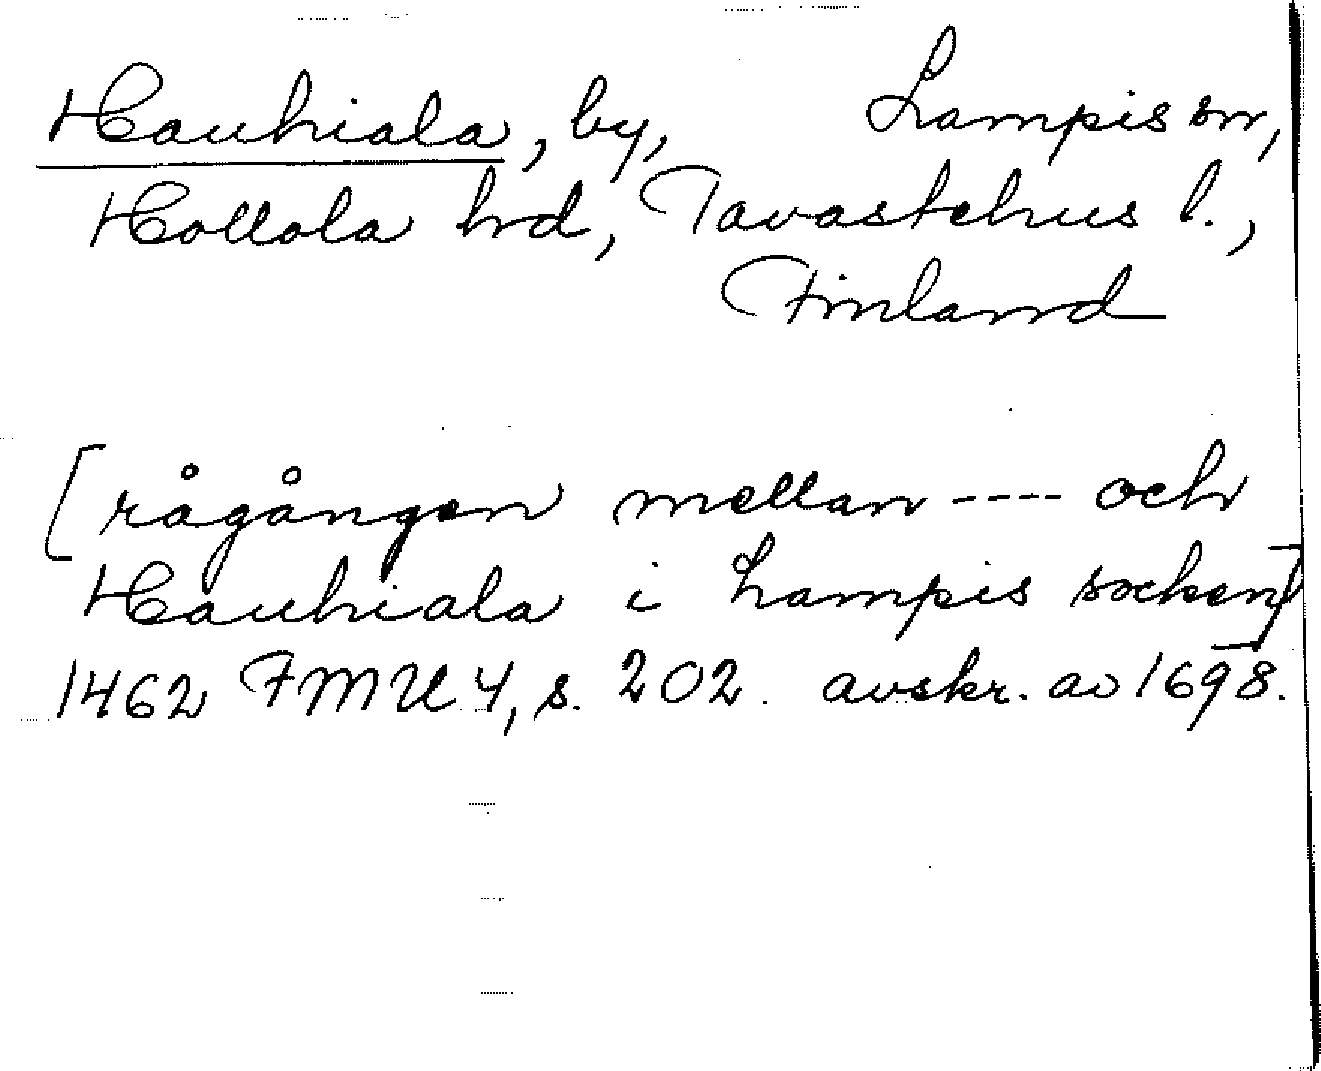 Hauhiala, by, Lampis sn,
Hollola hrd, Tavastehus l.,
Finland
[rågången mellan ---- och
Hauhiala i Lampis socken]
1462 FMU 4, s. 202. avskr. av 1698.